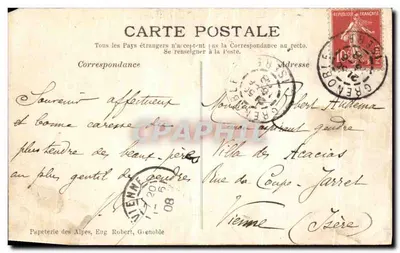 CARTE POSTALE
Tous les Pays étrangers n'acceptent pas la Correspondance au recto.
Se renseigner à la Poste.
Correspondance
Adresse
Souvenir affectueux
et bonne caresse du
plus tendre des beaux pères
au plus gentil des gendres
gendre
Villa des Acacias
Rue du Coupe-Jarret
Vienne (Isère)
GRENOBLE
ISERE
GRENOBLE
VIENNE
08
Papeterie des Alpes, Eug. Robert, Grenoble